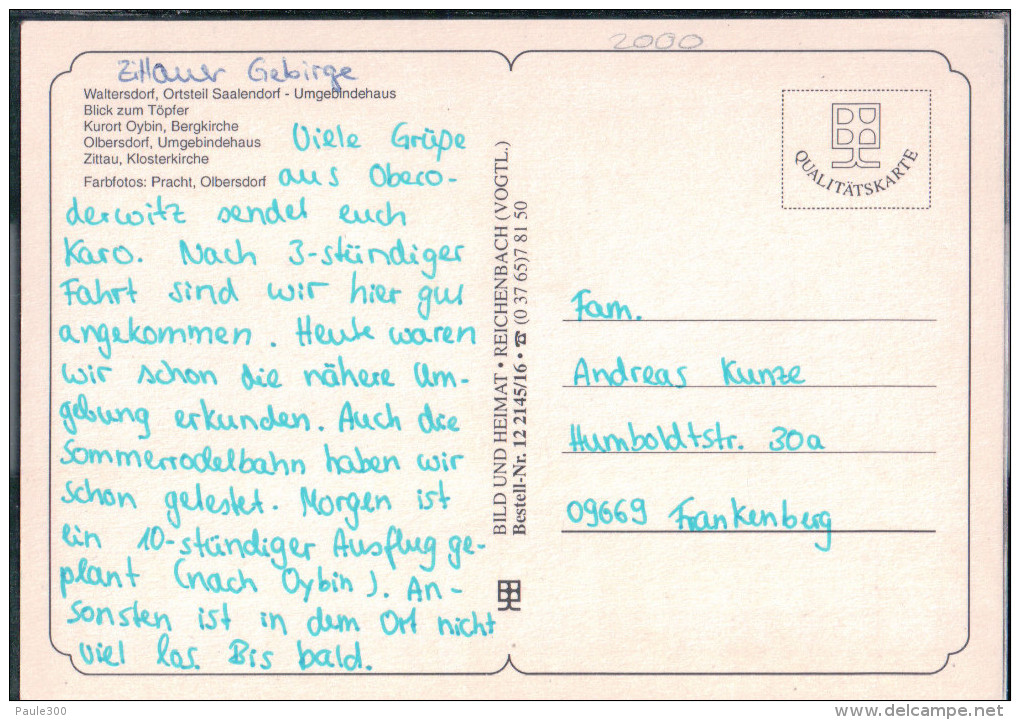 2000
Zittauer Gebirge
Waltersdorf, Ortsteil Saalendorf - Umgebindehaus
Blick zum Töpfer
Kurort Oybin, Bergkirche
Olbersdorf, Umgebindehaus
Zittau, Klosterkirche
Farbfotos: Pracht, Olbersdorf
Viele Grüße
aus Obero-
derwitz sendet euch
Karo. Nach 3-stündiger
Fahrt sind wir hier gut
angekommen. Heute waren
wir schon die nähere Um-
gebung erkunden. Auch die
Sommerrodelbahn haben wir
schon getestet. Morgen ist
ein 10-stündiger Ausflug ge-
plant (nach Oybin). An-
sonsten ist in dem Ort nicht
viel los. Bis bald.
BILD UND HEIMAT • REICHENBACH (VOGTL.)
Bestell-Nr. 12 2145/16 • ☎ (0 37 65) 7 81 50
QUALITÄTSKARTE
Fam.
Andreas Kunze
Humboldtstr. 30a
09669 Frankenberg
Paule300
www.delcampe.net